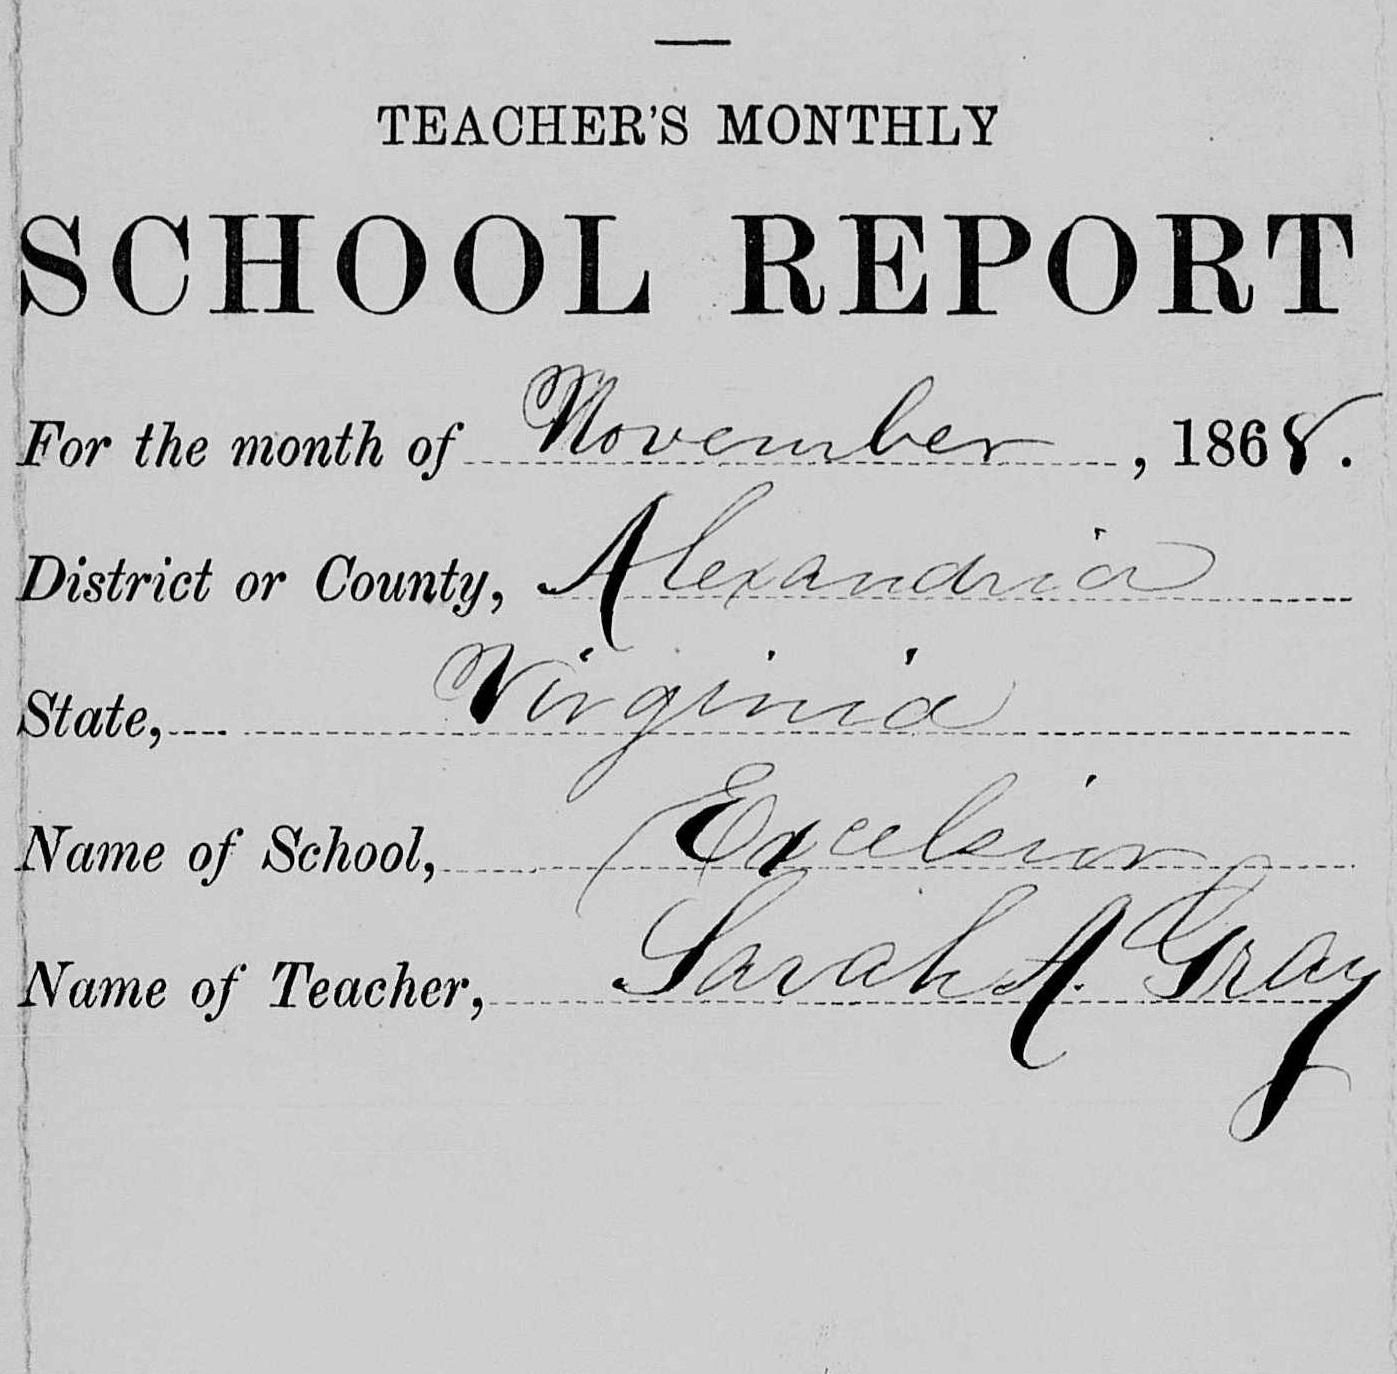 TEACHER'S MONTHLY
SCHOOL REPORT
For the month of November, 1868.
District or County, Alexandria
State, Virginia
Name of School, Excelsior
Name of Teacher, Sarah A. Gray